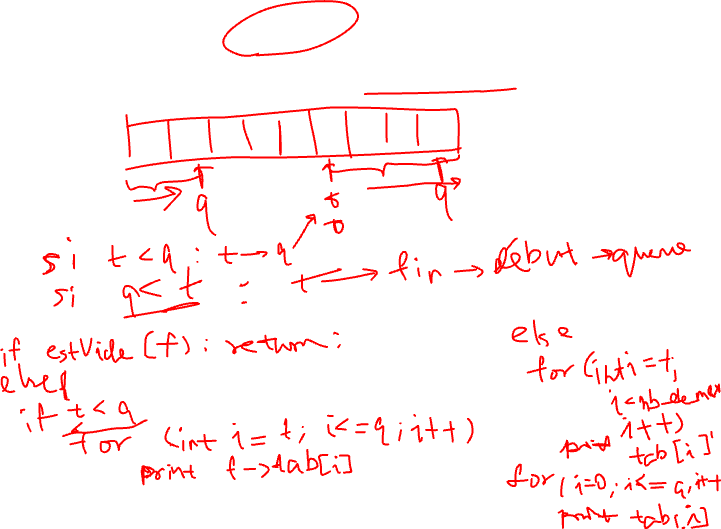 q
t
t
q
si t < q : t → q
si q < t : t → fin → debut → queue
if estVide (f) : return ;
else {
if t < q
for (int i = t ; i <= q ; i++)
print f → tab[i]
else
for (int i = t;
i < nb-
i++)
print tab[i]
for (i=0 ; i <= q, i++
print tab[i]